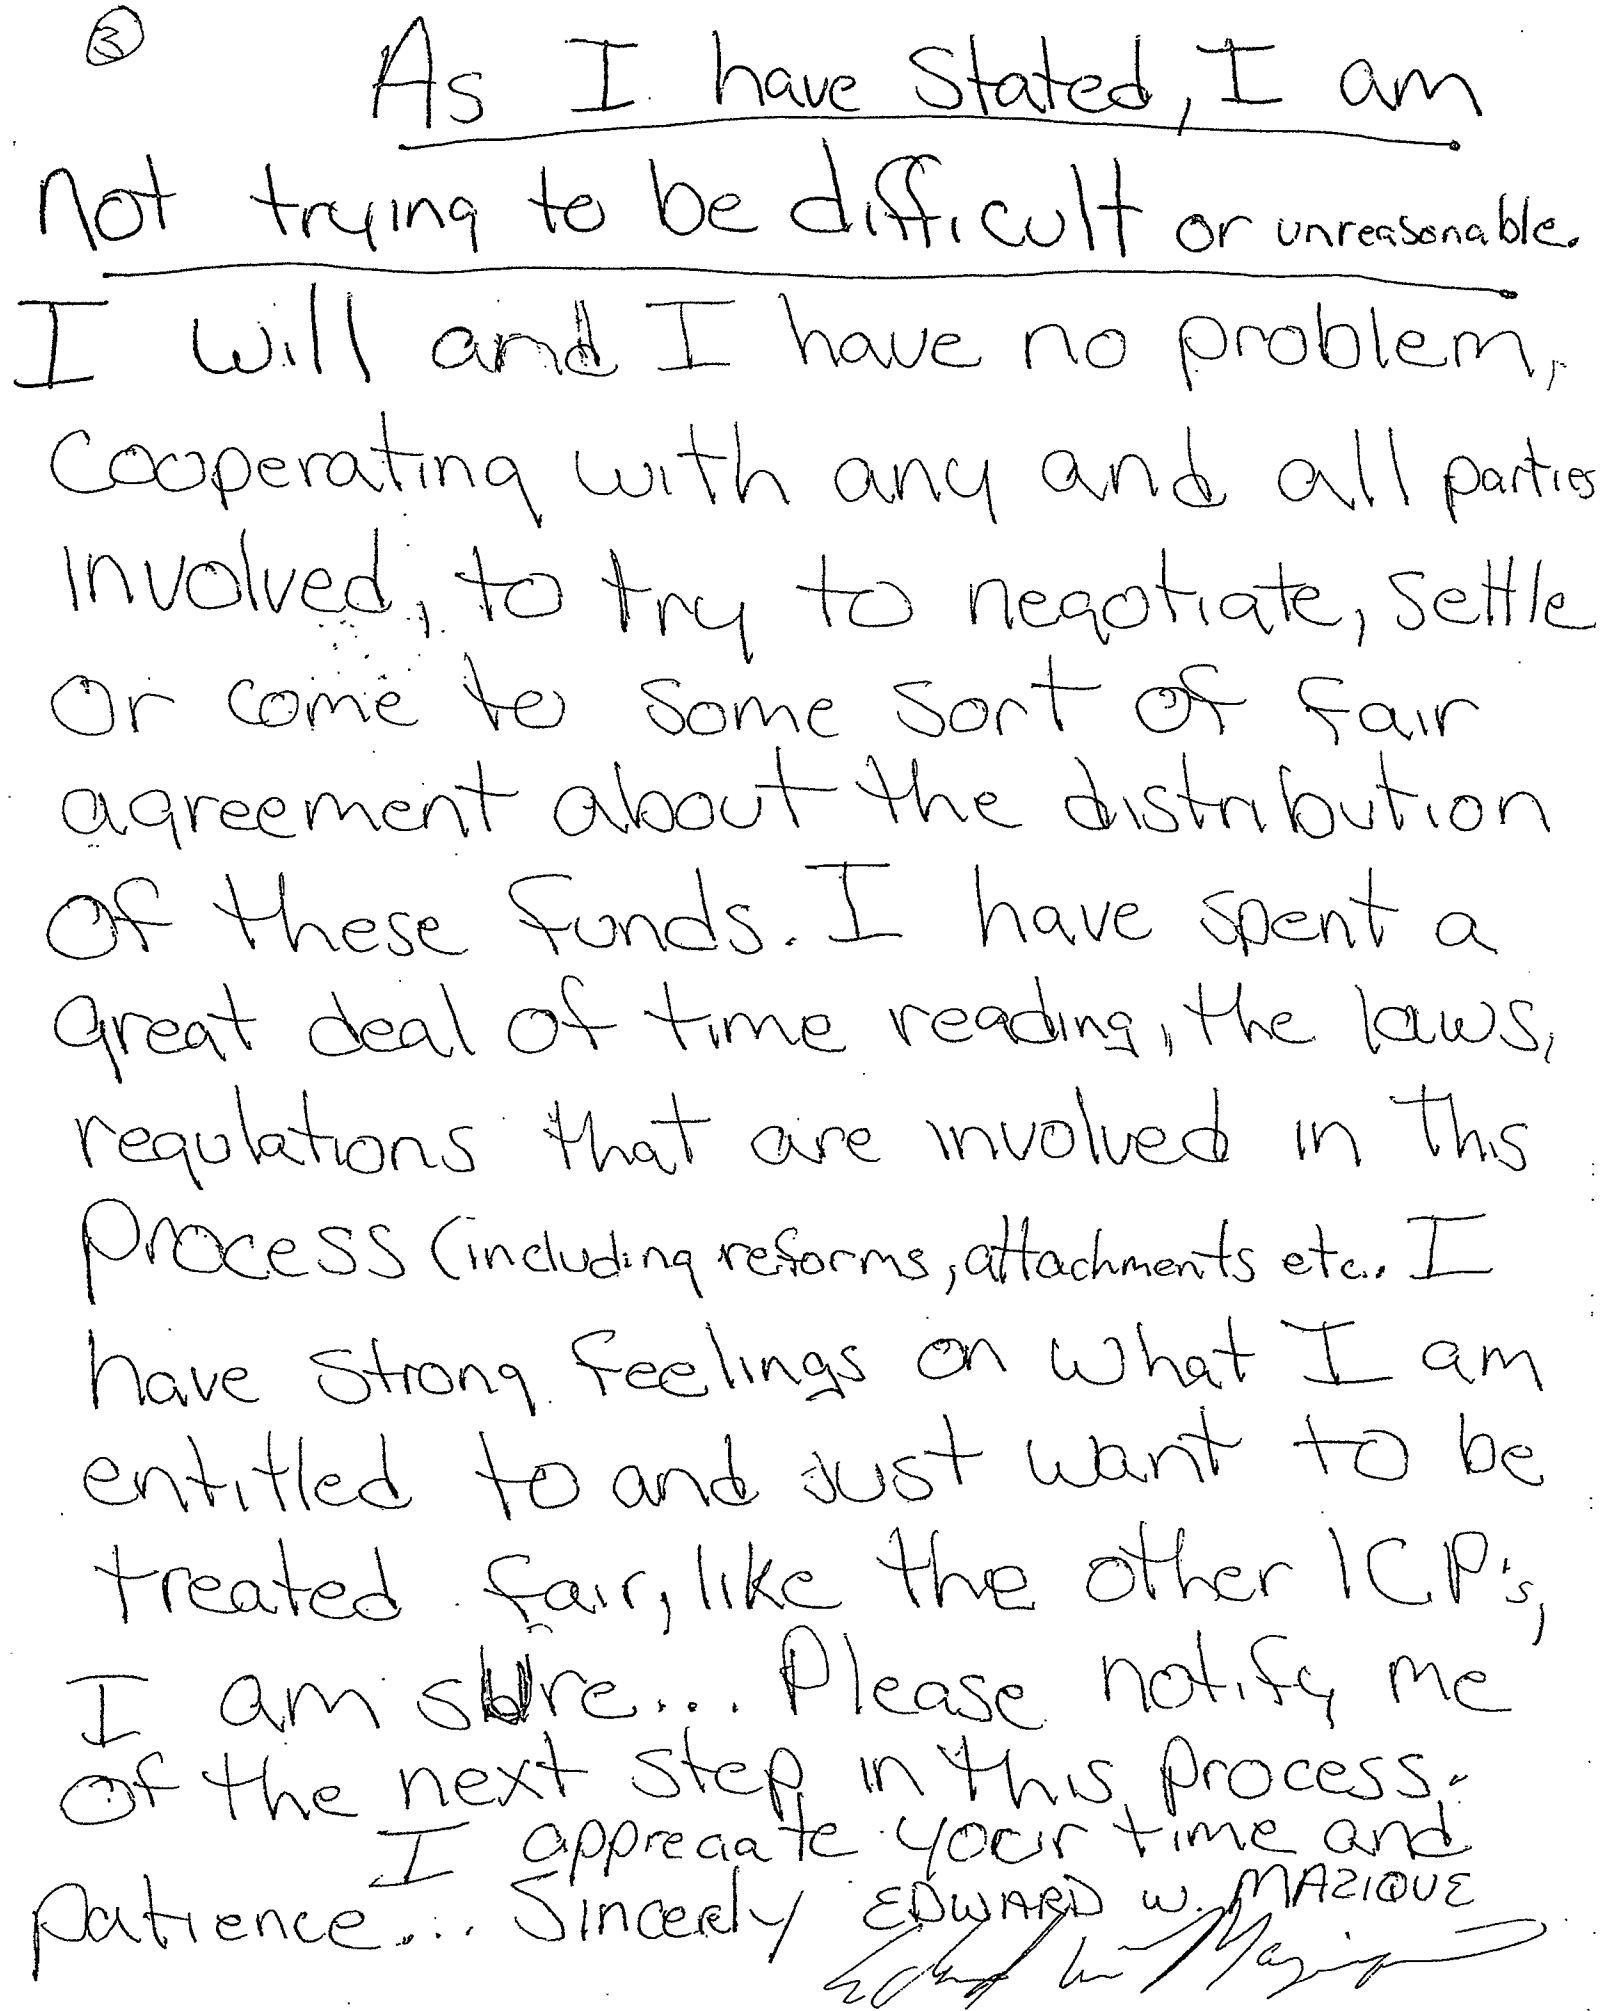 3 As I have stated, I am
not trying to be difficult or unreasonable.
I will and I have no problem,
cooperating with any and all parties
involved, to try to negotiate, settle
or come to some sort of fair
agreement about the distribution
of these funds. I have spent a
great deal of time reading, the laws,
regulations that are involved in this
process (including reforms, attachments etc.. I
have strong feelings on what I am
entitled to and just want to be
treated fair, like the other ICP's,
I am sure... Please notify me
of the next step in this process.
I appreciate your time and
patience... Sincerely EDWARD W. MAZIQUE